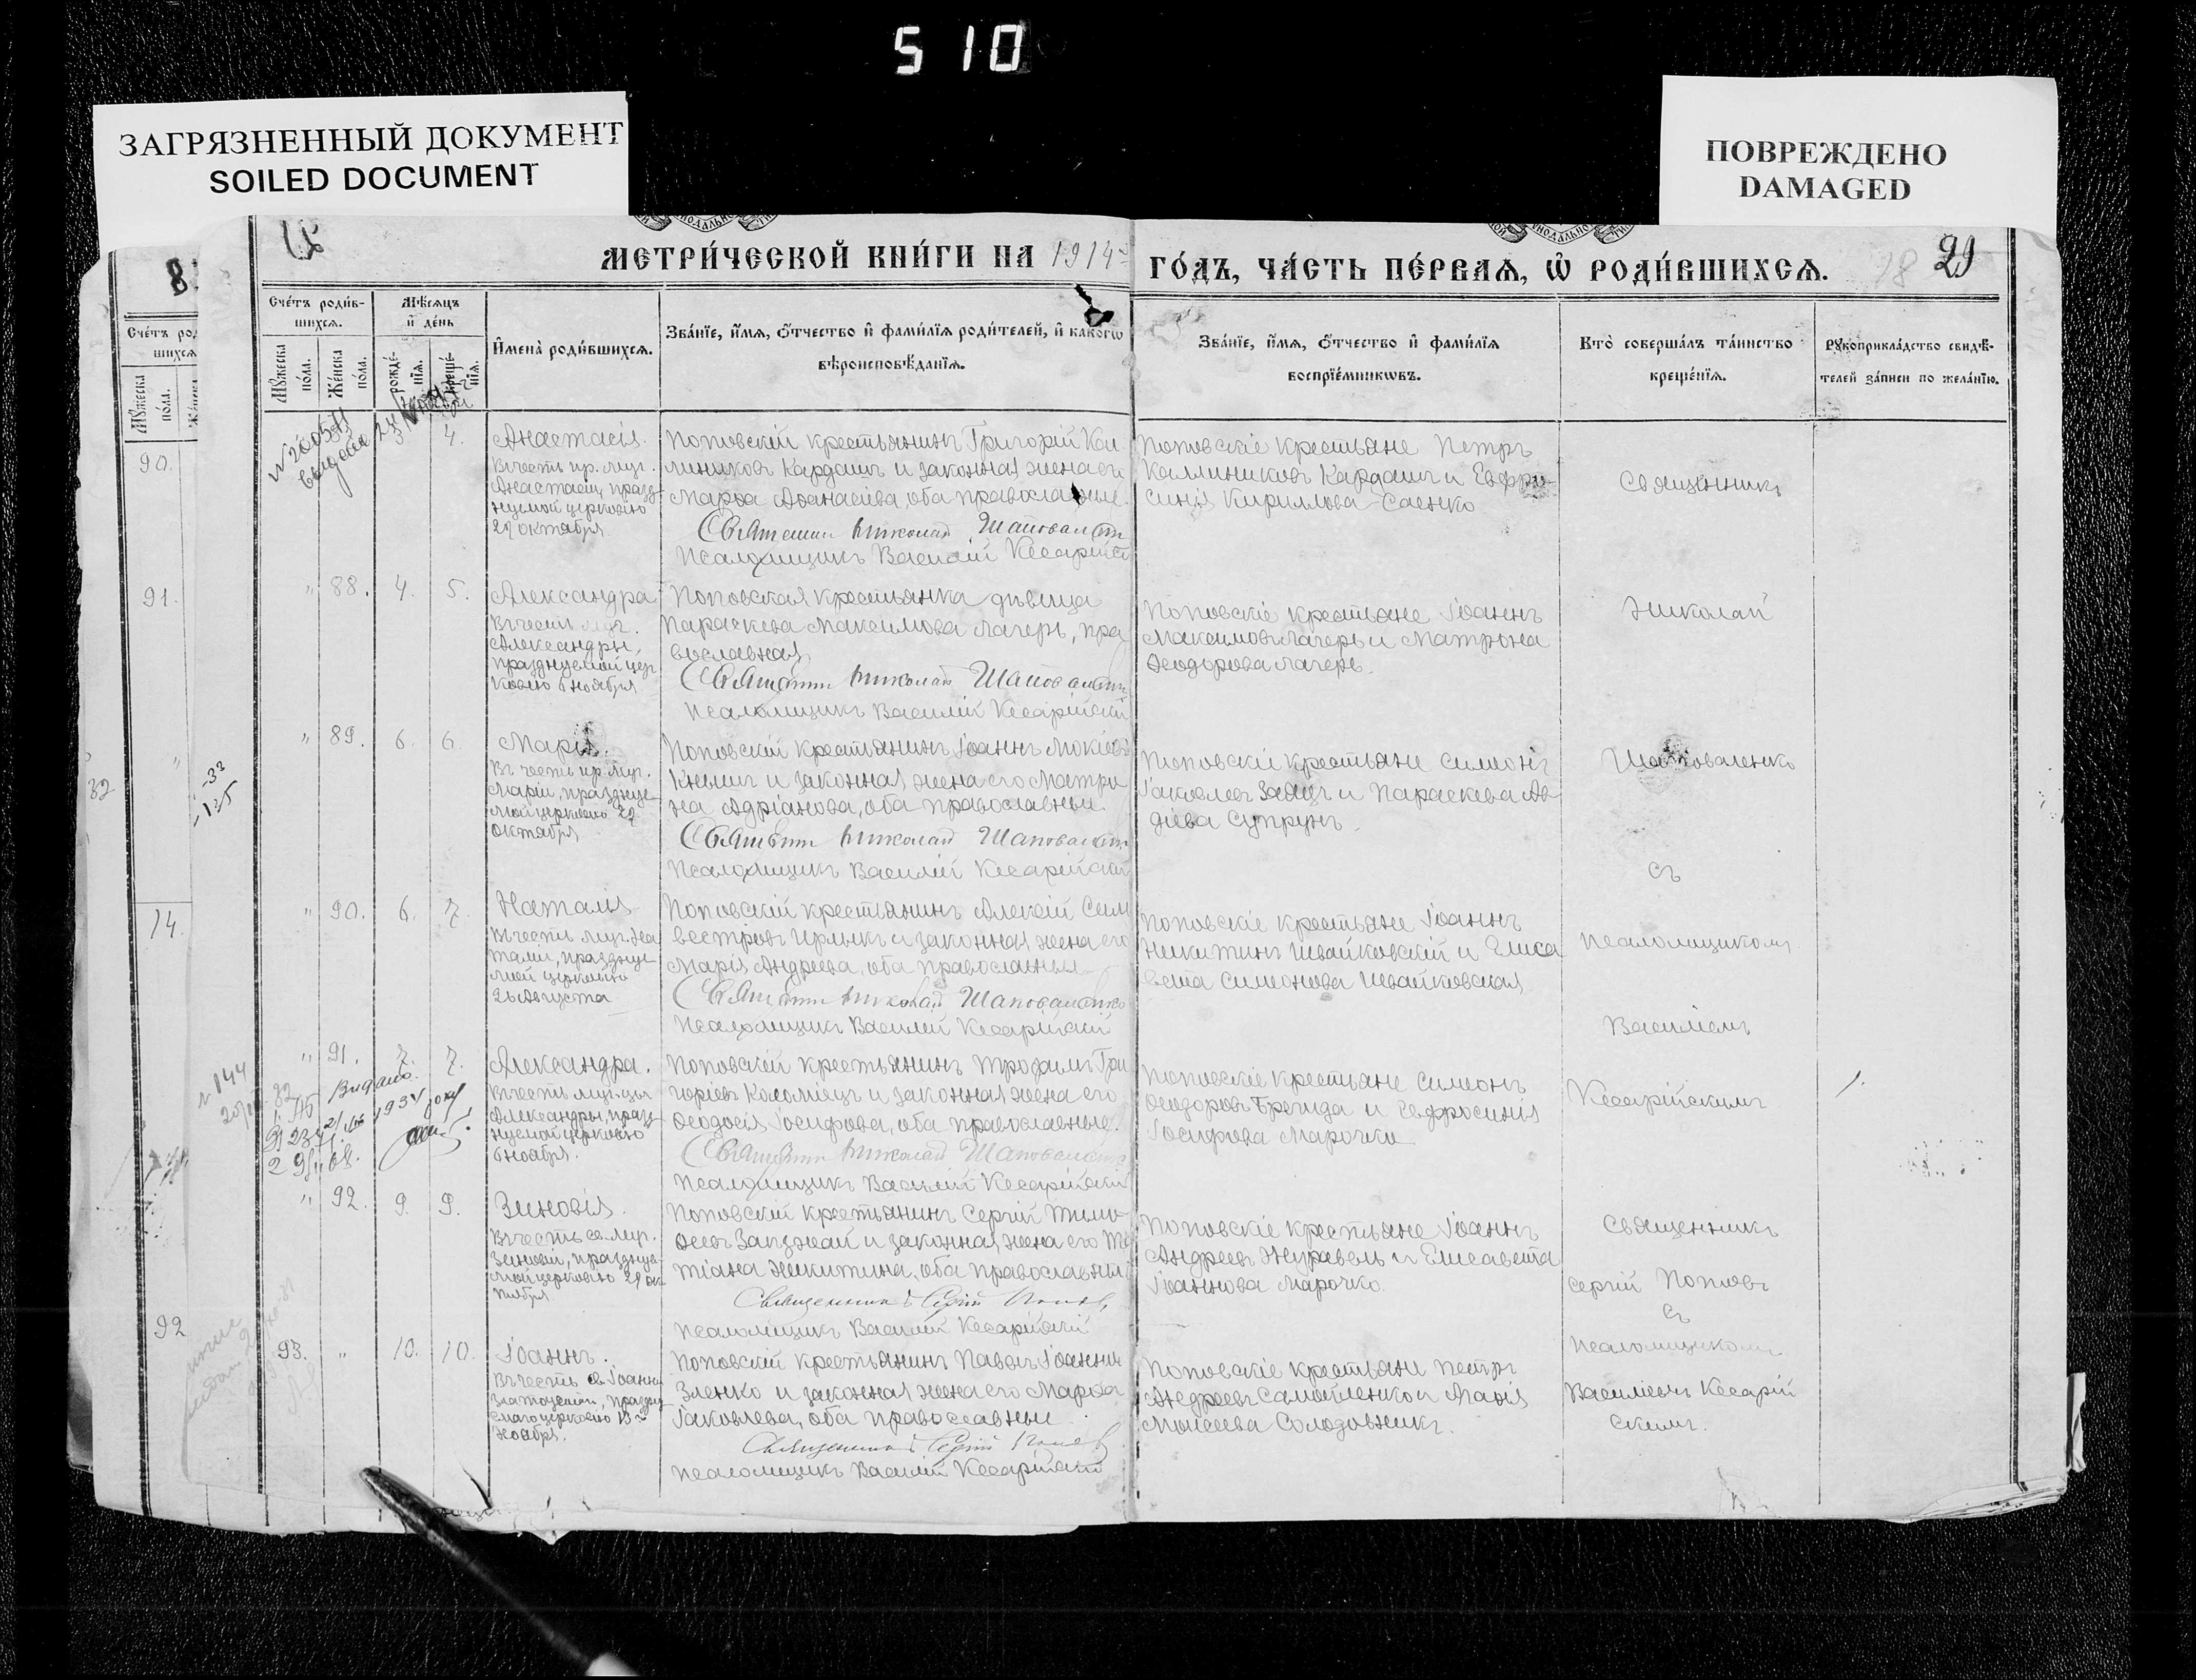 510
ЗАГРЯЗНЕННЫЙ ДОКУМЕНТ
SOILED DOCUMENT
ПОВРЕЖДЕНО
DAMAGED
МЕТРИ́ЧЕСКОЙ КНИ́ГИ НА 1914 ГО́ДЪ, ЧА́СТЬ ПЕ́РВАѦ, Ѽ РОДИ́ВШИХСѦ.
29
Сче́тъ роди́в-
шихсѧ.
Мѣ́сѧцъ
и҆ де́нь
Мꙋ́жеска
по́ла.
Же́нска
по́ла.
рожде́-
нїѧ.
креще́-
нїѧ.
И҆мена̀ роди́вшихсѧ.
Зва́нїе, и҆́мѧ, ѻ҆́тчество и҆ фами́лїѧ роди́телей, и҆ како́гѡ
вѣроисповѣ́данїѧ.
Зва́нїе, и҆́мѧ, ѻ҆́тчество и҆ фами́лїѧ
воспрїе́мникѡвъ.
Кто̀ соверша́лъ та́инство
креще́нїѧ.
Рꙋкоприкла́дство свидѣ́-
телей за́писи по жела́нїю.
90.
4.
Анастасія.
Въ честь пр. муч.
Анастасіи, празд-
нуемой церковію
29 октября
Поповскій крестьянинъ Григорій Кал-
линиковъ Кардашъ и законная жена его
Марѳа Аѳанасіева, оба православные.
Николай Шаповаленко
Псаломщикъ Василій Кесарійскій
Поповскіе крестьяне Петръ
Каллиниковъ Кардашъ и Евфро-
синія Кириллова Саенко
Священникъ
91.
" 88. 4. 5.
Александра
Въ честь муч.
Александры,
празднуемой цер
ковію 6 ноября
Поповская крестьянка дѣвица
Параскева Максимова Лагерь, пра
вославная.
Николай Шаповаленко
Псаломщикъ Василій Кесарійскій
Поповскіе крестьяне Іоаннъ
Максимовъ Лагерь и Матрона
Ѳеодорова Лагерь.
Николай
" 89. 6. 6.
Марія.
Въ честь пр. муч.
Маріи, празднуе-
мой церковію 29
октября
Поповскій крестьянинъ Іоаннъ Мокіевъ
Кнышъ и законная жена его Матро
на Адріанова, оба православные.
Николай Шаповаленко
Псаломщикъ Василій Кесарійскій
Поповскіе крестьяне Симеонъ
Іаковлевъ Заяцъ и Параскева Ав
діева Супрунъ.
Шаповаленко
съ
14.
" 90. 6. 7.
Наталія
Въ честь муч. На
таліи, празднуе-
мой церковію
26 августа
Поповскій крестьянинъ Алексій Сил
вестровъ Ирлыкъ и законная жена его
Марія Андреева, оба православные
Николай Шаповаленко
Псаломщикъ Василій Кесарійскій
Поповскіе крестьяне Іоаннъ
Никитинъ Швайковскій и Елиса
вета Симеонова Швайковская
псаломщикомъ
Василіемъ
" 91. 7. 7.
Александра.
Въ честь муч.
Александры, празд-
нуемой церковію
6 ноября.
Поповскій крестьянинъ Трофимъ Гри
горіевъ Коломіецъ и законная жена его
Ѳеодосія Іосифова, оба православные.
Николай Шаповаленко
Псаломщикъ Василій Кесарійскій
Поповскіе крестьяне Симеонъ
Ѳеодоровъ Брегида и Евфросинія
Іосифова Марочко
Кесарійскимъ
" 92. 9. 9.
Зиновія.
Въ честь св. муч.
Зиновіи, празднуе-
мой церковію
Поповскій крестьянинъ Сергій Тимо
ѳеевъ и законная жена его Та
тіана Никитина, оба православные
Священникъ Сергій Поповъ
Псаломщикъ Василій Кесарійскій
Поповскіе крестьяне Іоаннъ
Андреевъ Журавель и Елисавета
Іоаннова Марочко.
Священникъ
Сергій Поповъ
съ
псаломщикомъ
92
93. " 10. 10.
Іоаннъ.
Въ честь св. Іоанна
Златоустаго,
церковію 13
ноября.
Поповскій крестьянинъ Павелъ Іоанновъ
Зленко и законная жена его Марѳа
Іаковлева, оба православные.
Священникъ Сергій Поповъ
Псаломщикъ Василій Кесарійскій
Поповскіе крестьяне Петръ
Андреевъ Самойленко и Марія
Моисеева Солодовникъ.
Василіемъ Кесарій
скимъ.